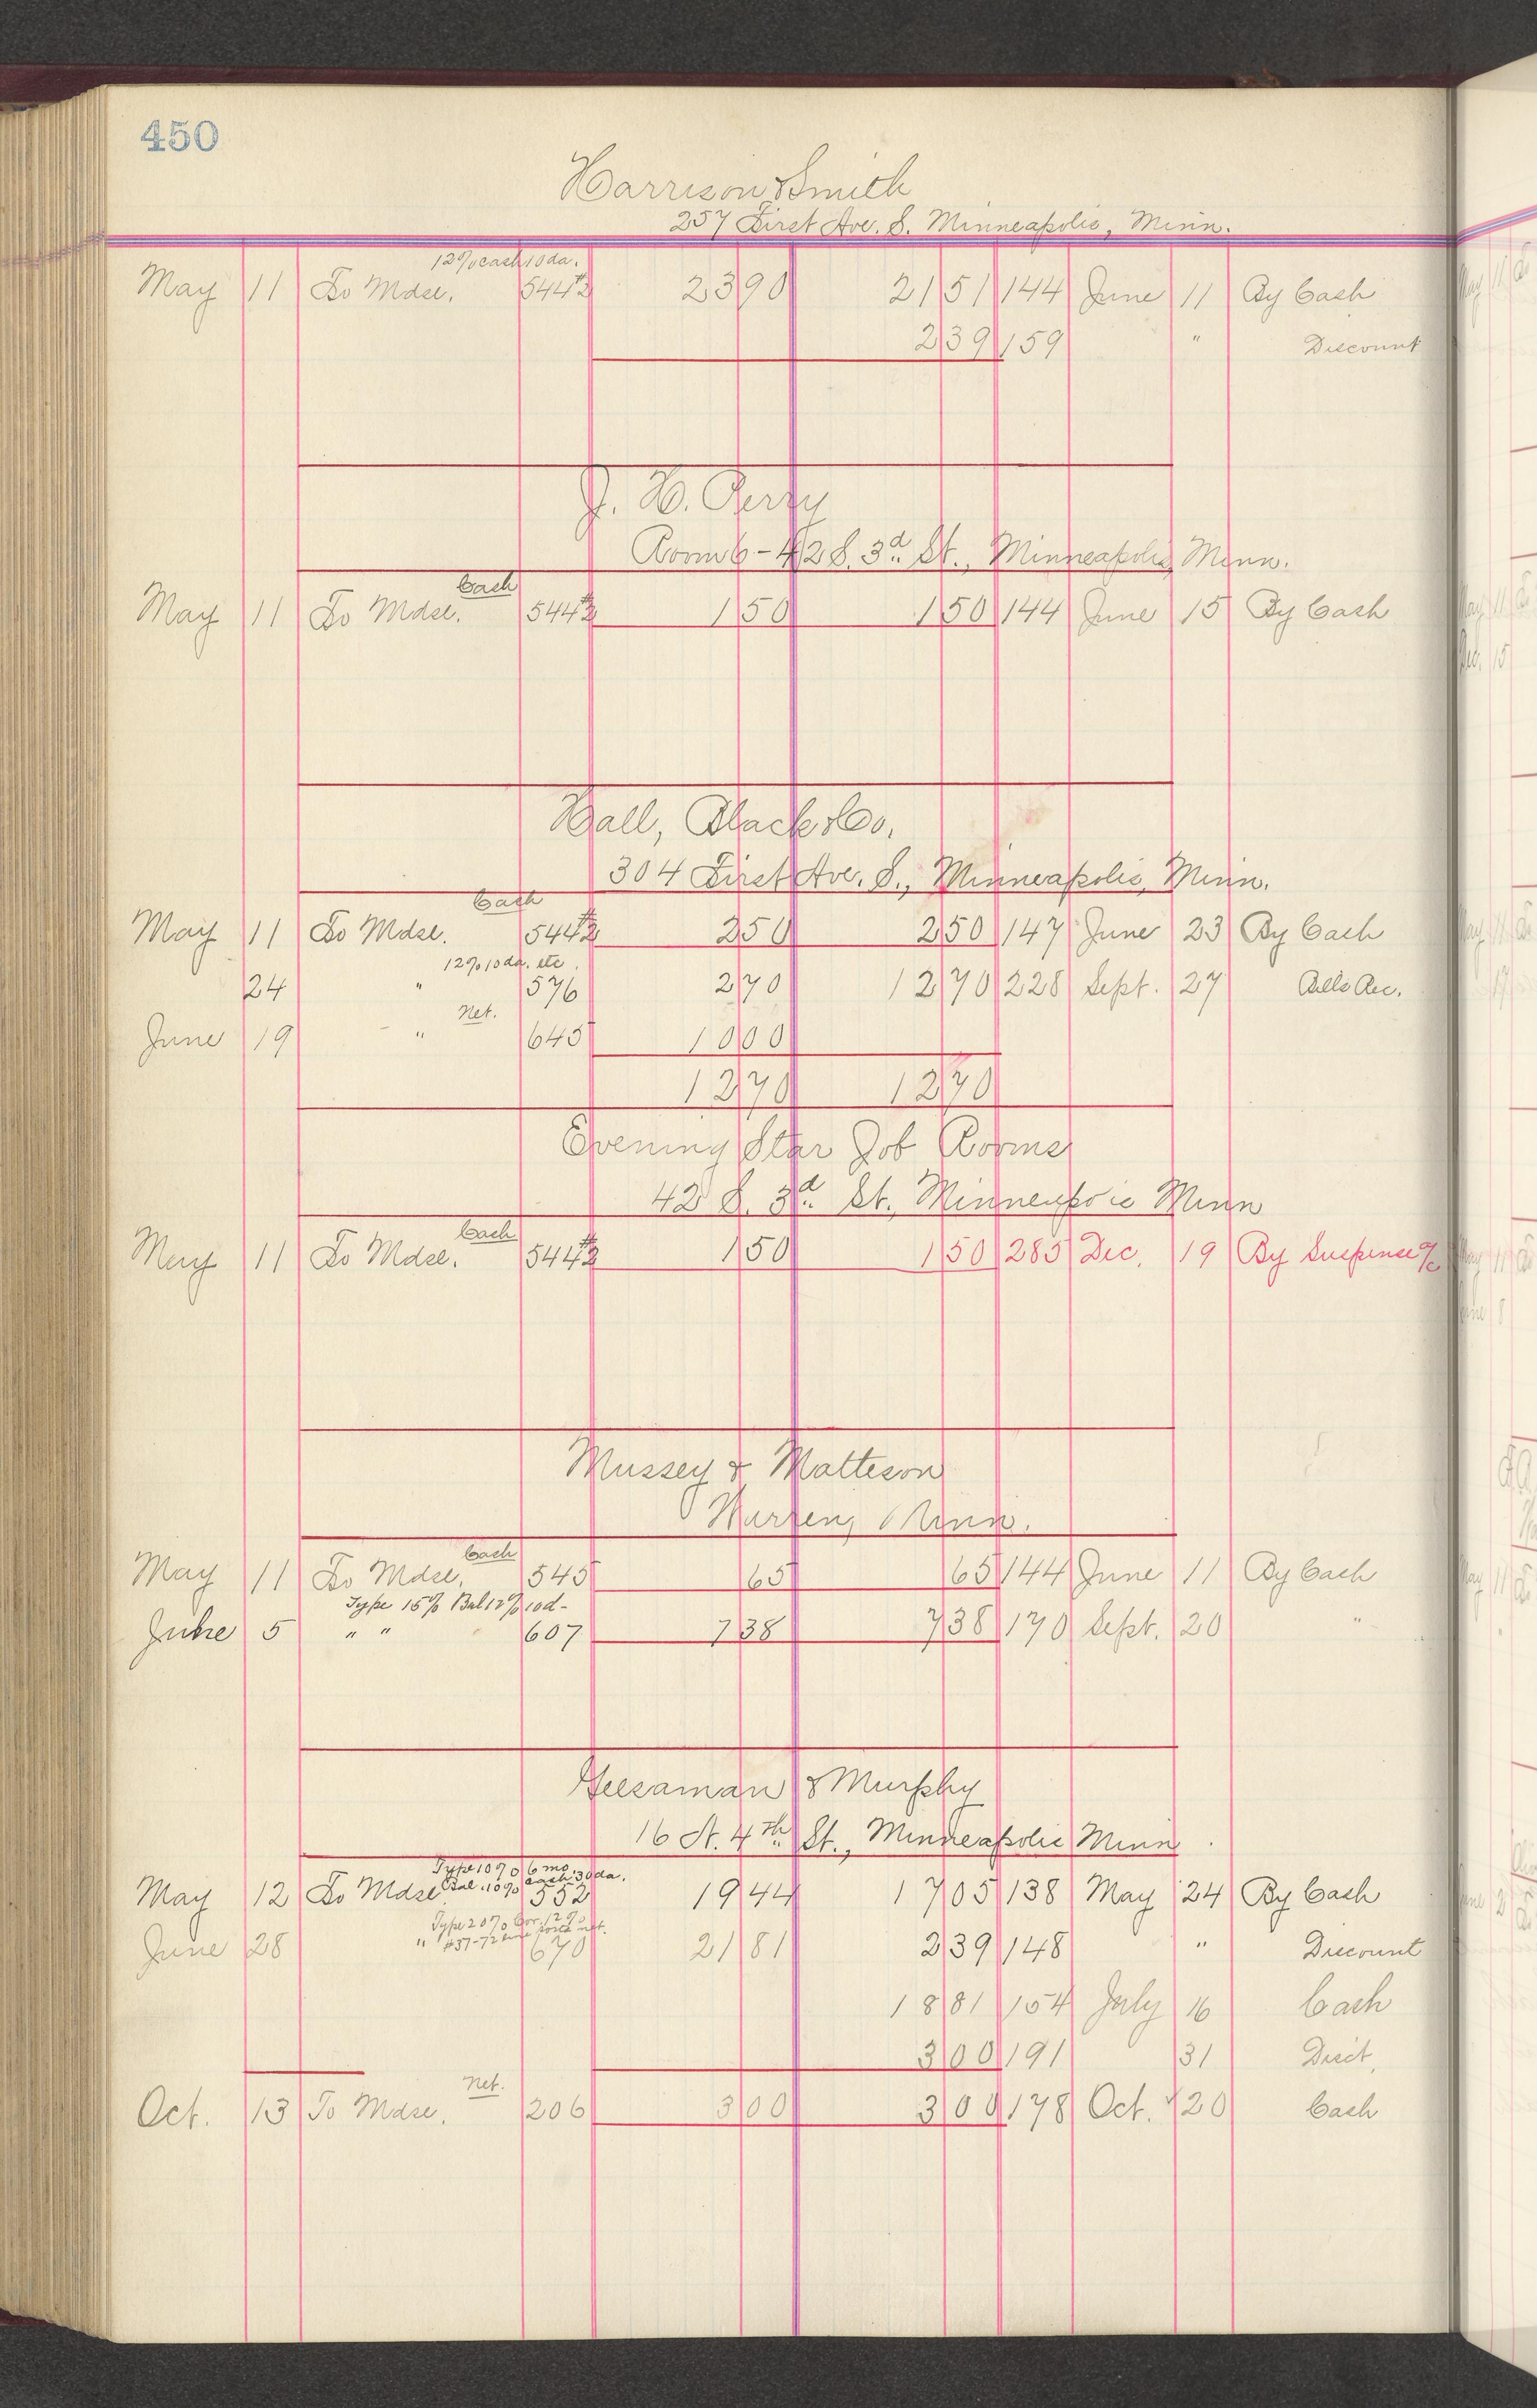 450
Harrison & Smith
257 First Ave. S. Minneapolis, Minn.
12% cash 10 da.
May 11 To Mdse. 544½ 23 90 21 51 144 June 11 By Cash
2 39 159 " Discount
J. H. Perry
Room 6 - 42 S. 3d St., Minneapolis, Minn.
Cash
May 11 To Mdse. 544½ 1 50 1 50 144 June 15 By Cash
Hall, Black & Co.
304 First Ave. S., Minneapolis, Minn.
Cash
May 11 To Mdse. 544½ 2 50 2 50 147 June 23 By Cash
12% 10 da. etc.
24 " 576 2 70 12 70 228 Sept. 27 Bills Rec.
Net.
June 19 " 645 10 00
12 70 12 70
Evening Star Job Rooms
42 S. 3d St., Minneapolis Minn
Cash
May 11 To Mdse. 544½ 1 50 1 50 285 Dec. 19 By Suspense a/c
Mussey & Matteson
Warren, Minn.
Cash
May 11 To Mdse. 545 65 65 144 June 11 By Cash
Type 15% Bal 12% 10 d-
June 5 " " 607 7 38 7 38 170 Sept. 20 "
Geesaman & Murphy
16 N. 4th St., Minneapolis Minn
Type 10% 6 mo.
Bal. 10% cash 30 da.
May 12 To Mdse 552 19 44 17 05 138 May 24 By Cash
Type 20% 12%
#37-72 net.
June 28 " 670 21 81 2 39 148 " Discount
18 81 154 July 16 Cash
3 00 191 31 Disct.
Net.
Oct. 13 To Mdse. 206 3 00 3 00 178 Oct. 20 Cash